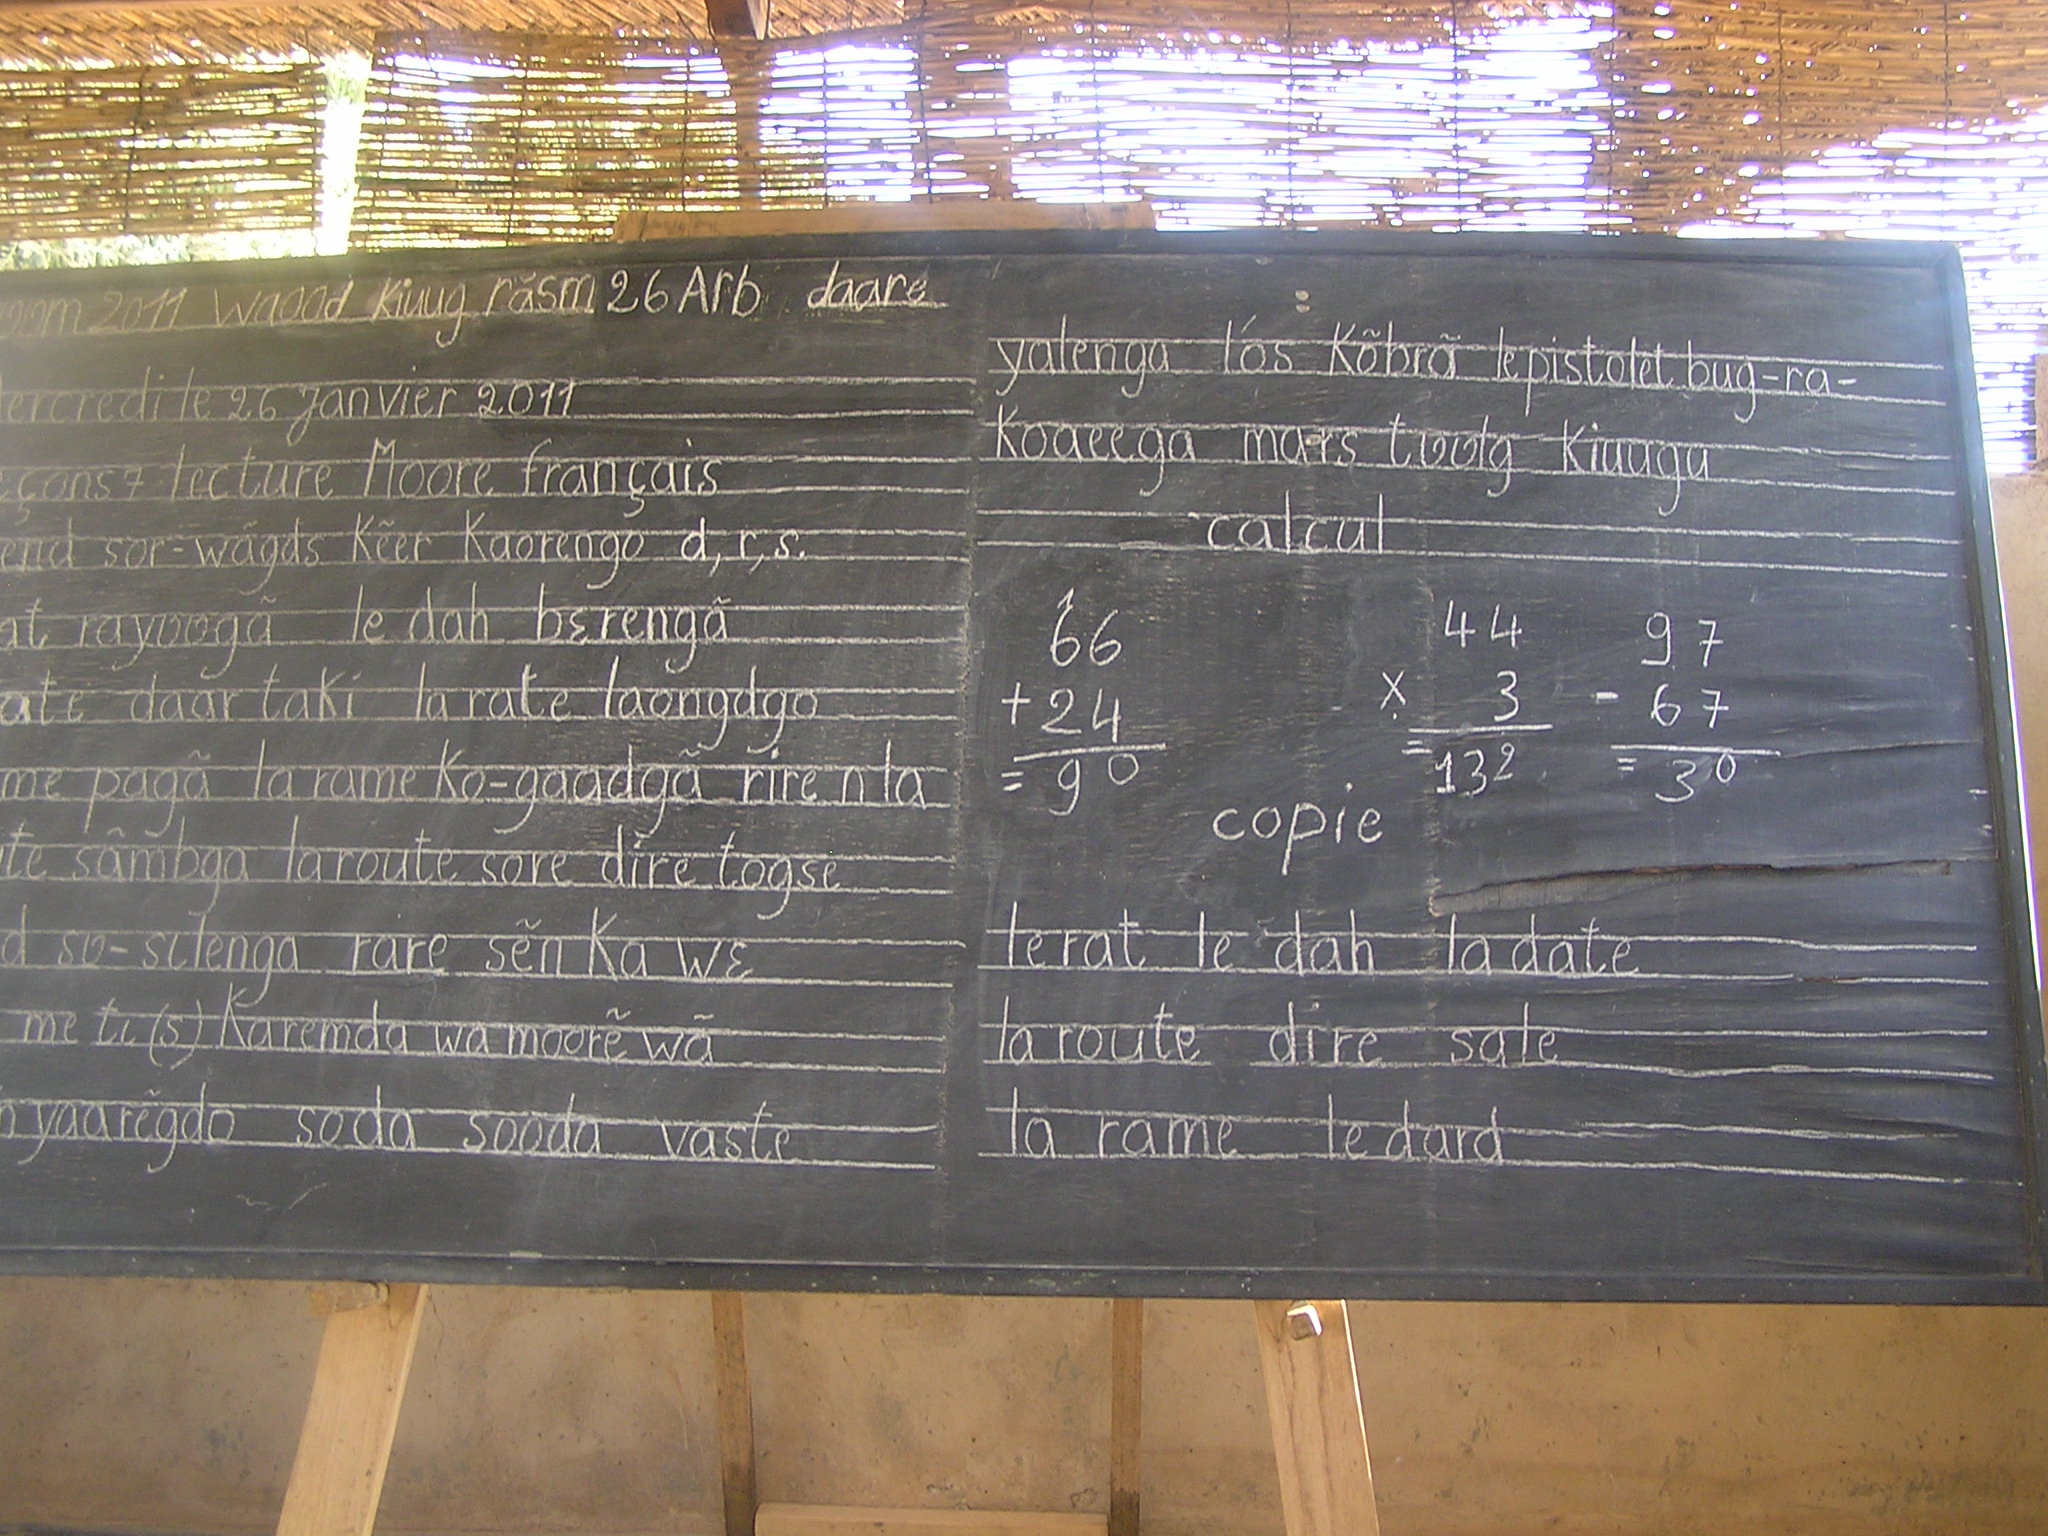 2011 waood kiuug rãsm 26 Arb daare
Mercredi le 26 Janvier 2011
leçons 7 lecture Moore français
sor-wãgds kẽer kaorengo d,r,s.
rat rayʋʋgã le dah bɛrengã
date daar taki la rate laongdgo
me pagã la rame ko-gaadgã rire n la
sãmbga la route sore dire togse
sʋ-sɩlenga rare sẽn ka wɛ
me tɩ (s) karemda wa moorẽ wã
yaarẽgdo soda sooda vaste
yalenga l'os kõbrã le pistolet bug-ra-
koaeega mars tʋʋlg kiuuga
calcul
1
66
+ 24
= 90
44
x 3
= 132
97
- 67
= 30
copie
le rat le dah la date
la route dire sale
la rame le dard